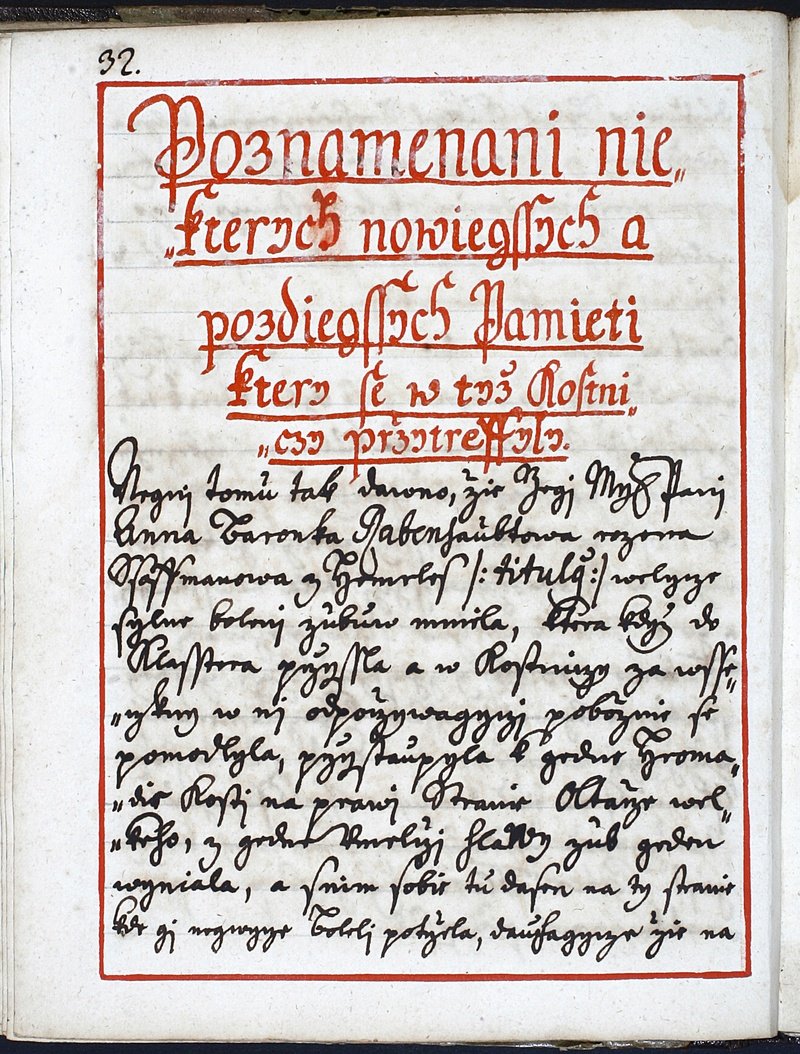 32.
Poznamenani nie„
„kterych nowiegssych a
pozdiegssych Pamieti
ktery se w tyž Kostni„
„czy przytreffyly.
Negni tomu tak dawno, žie Jegj Mył Panj
Anna Baronka Rabenhaubtowa rozena
Ssaffmanowa z Hemeles /: titulq :/ welycze
sylne bolenj zubuw mniela, ktera když do
Klasstera przyssla a w Kostniczy za wsse„
„czkny w nj odpoczywagyczj pobožnie se
pomodlyla, przystaupyla k gedne Hroma„
„die Kostj na prawj Stranie Oltarze wel„
„keho, z gedne Vmrlczj hlawy zub geden
wyniala, a snim sobie tu dasen na ty stranie
kde gj negwycze Bolelj potržela, daufagycze žie na